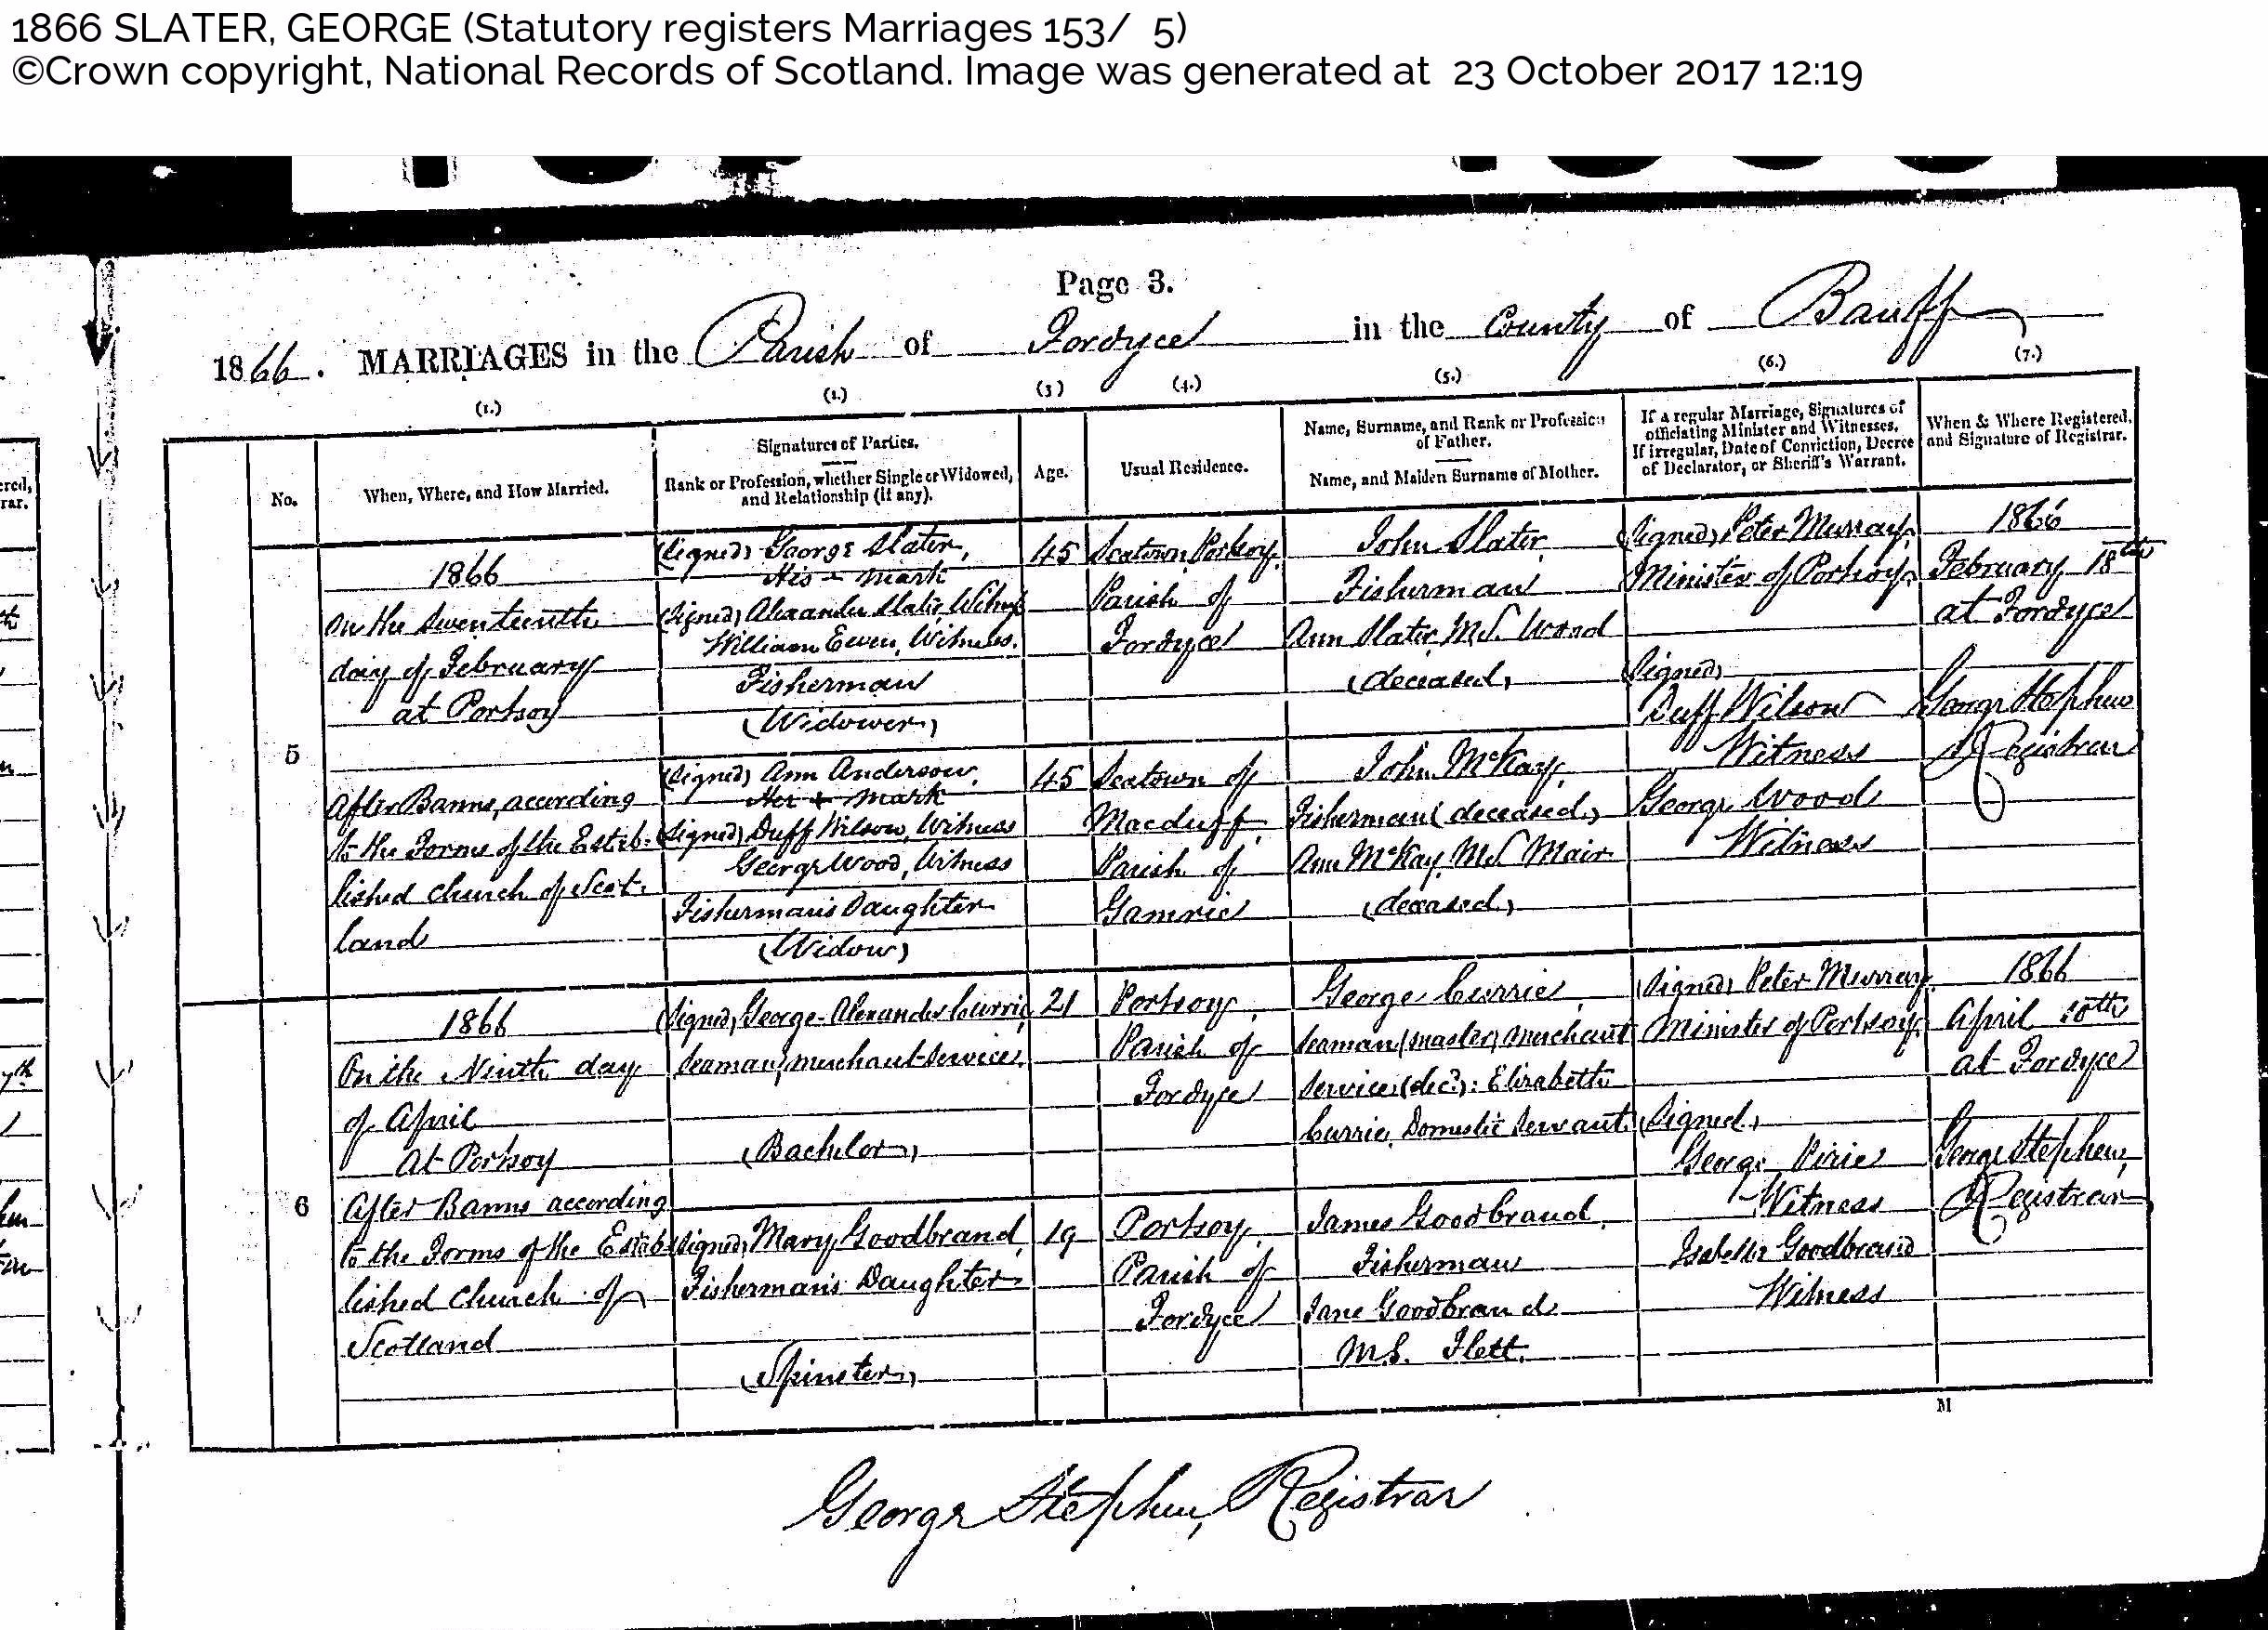 1866 SLATER, GEORGE (Statutory registers Marriages 153/ 5)
©Crown copyright, National Records of Scotland. Image was generated at 23 October 2017 12:19
Page 3.
1866. MARRIAGES in the Parish of Fordyce in the County of Banff
(1.)
(2.)
(3)
(4.)
(5.)
(6.)
(7.)
No.
When, Where, and How Married.
Signatures of Parties.
Rank or Profession, whether Single or Widowed,
and Relationship (if any).
Age.
Usual Residence.
Name, Surname, and Rank or Profession
of Father.
Name, and Maiden Surname of Mother.
If a regular Marriage, Signatures of
officiating Minister and Witnesses.
If irregular, Date of Conviction, Decree
of Declarator, or Sheriff's Warrant.
When & Where Registered,
and Signature of Registrar.
5
1866
On the Seventeenth
day of February
at Portsoy
After Banns, according
to the Forms of the Estab-
lished Church of Scot-
land
(Signed) George Slater,
His + mark
(Signed) Alexander Slater, Witness
William Ewen, Witness.
Fisherman
(Widower)
45
Seatown, Portsoy,
Parish of
Fordyce
John Slater,
Fisherman
Ann Slater, M.S. Wood
(deceased)
(Signed) Ann Anderson,
Her + mark
(Signed) Duff Wilson, Witness
George Wood, Witness
Fisherman's Daughter
(Widow)
45
Seatown of
Macduff,
Parish of
Gamrie
John McKay,
Fisherman (deceased)
Ann McKay, M.S. Mair
(deceased)
(Signed) Peter Murray,
Minister of Portsoy,
(Signed)
Duff Wilson
Witness
George Wood
Witness
1866
February 18th
at Fordyce
George Stephen
Registrar
6
1866
On the Ninth day
of April
At Portsoy
After Banns according
to the Forms of the Estab
lished Church of
Scotland
(Signed) George Alexander Currie
Seaman, merchant service.
(Bachelor)
21
Portsoy,
Parish of
Fordyce
George Currie,
Seaman (master) merchant
service (decd): Elizabeth
Currie, Domestic Servant.
(Signed) Mary Goodbrand,
Fisherman's Daughter
(Spinster)
19
Portsoy,
Parish of
Fordyce
James Goodbrand,
Fisherman
Jane Goodbrand
M.S. Flett.
(Signed) Peter Murray,
Minister of Portsoy.
(Signed)
George Pirie
Witness
Isabella Goodbrand
Witness
1866
April 10th
at Fordyce
George Stephen,
Registrar
M
George Stephen, Registrar